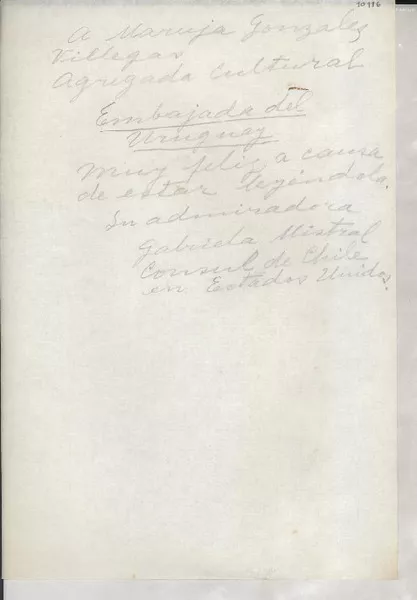 10186
A Maruja Gonzalez
Villegas
Agregada Cultural
Embajada del
Uruguay
Muy feliz a causa
de estar leyéndola.
Su admiradora
Gabriela Mistral
Consul de Chile
en Estados Unidos.